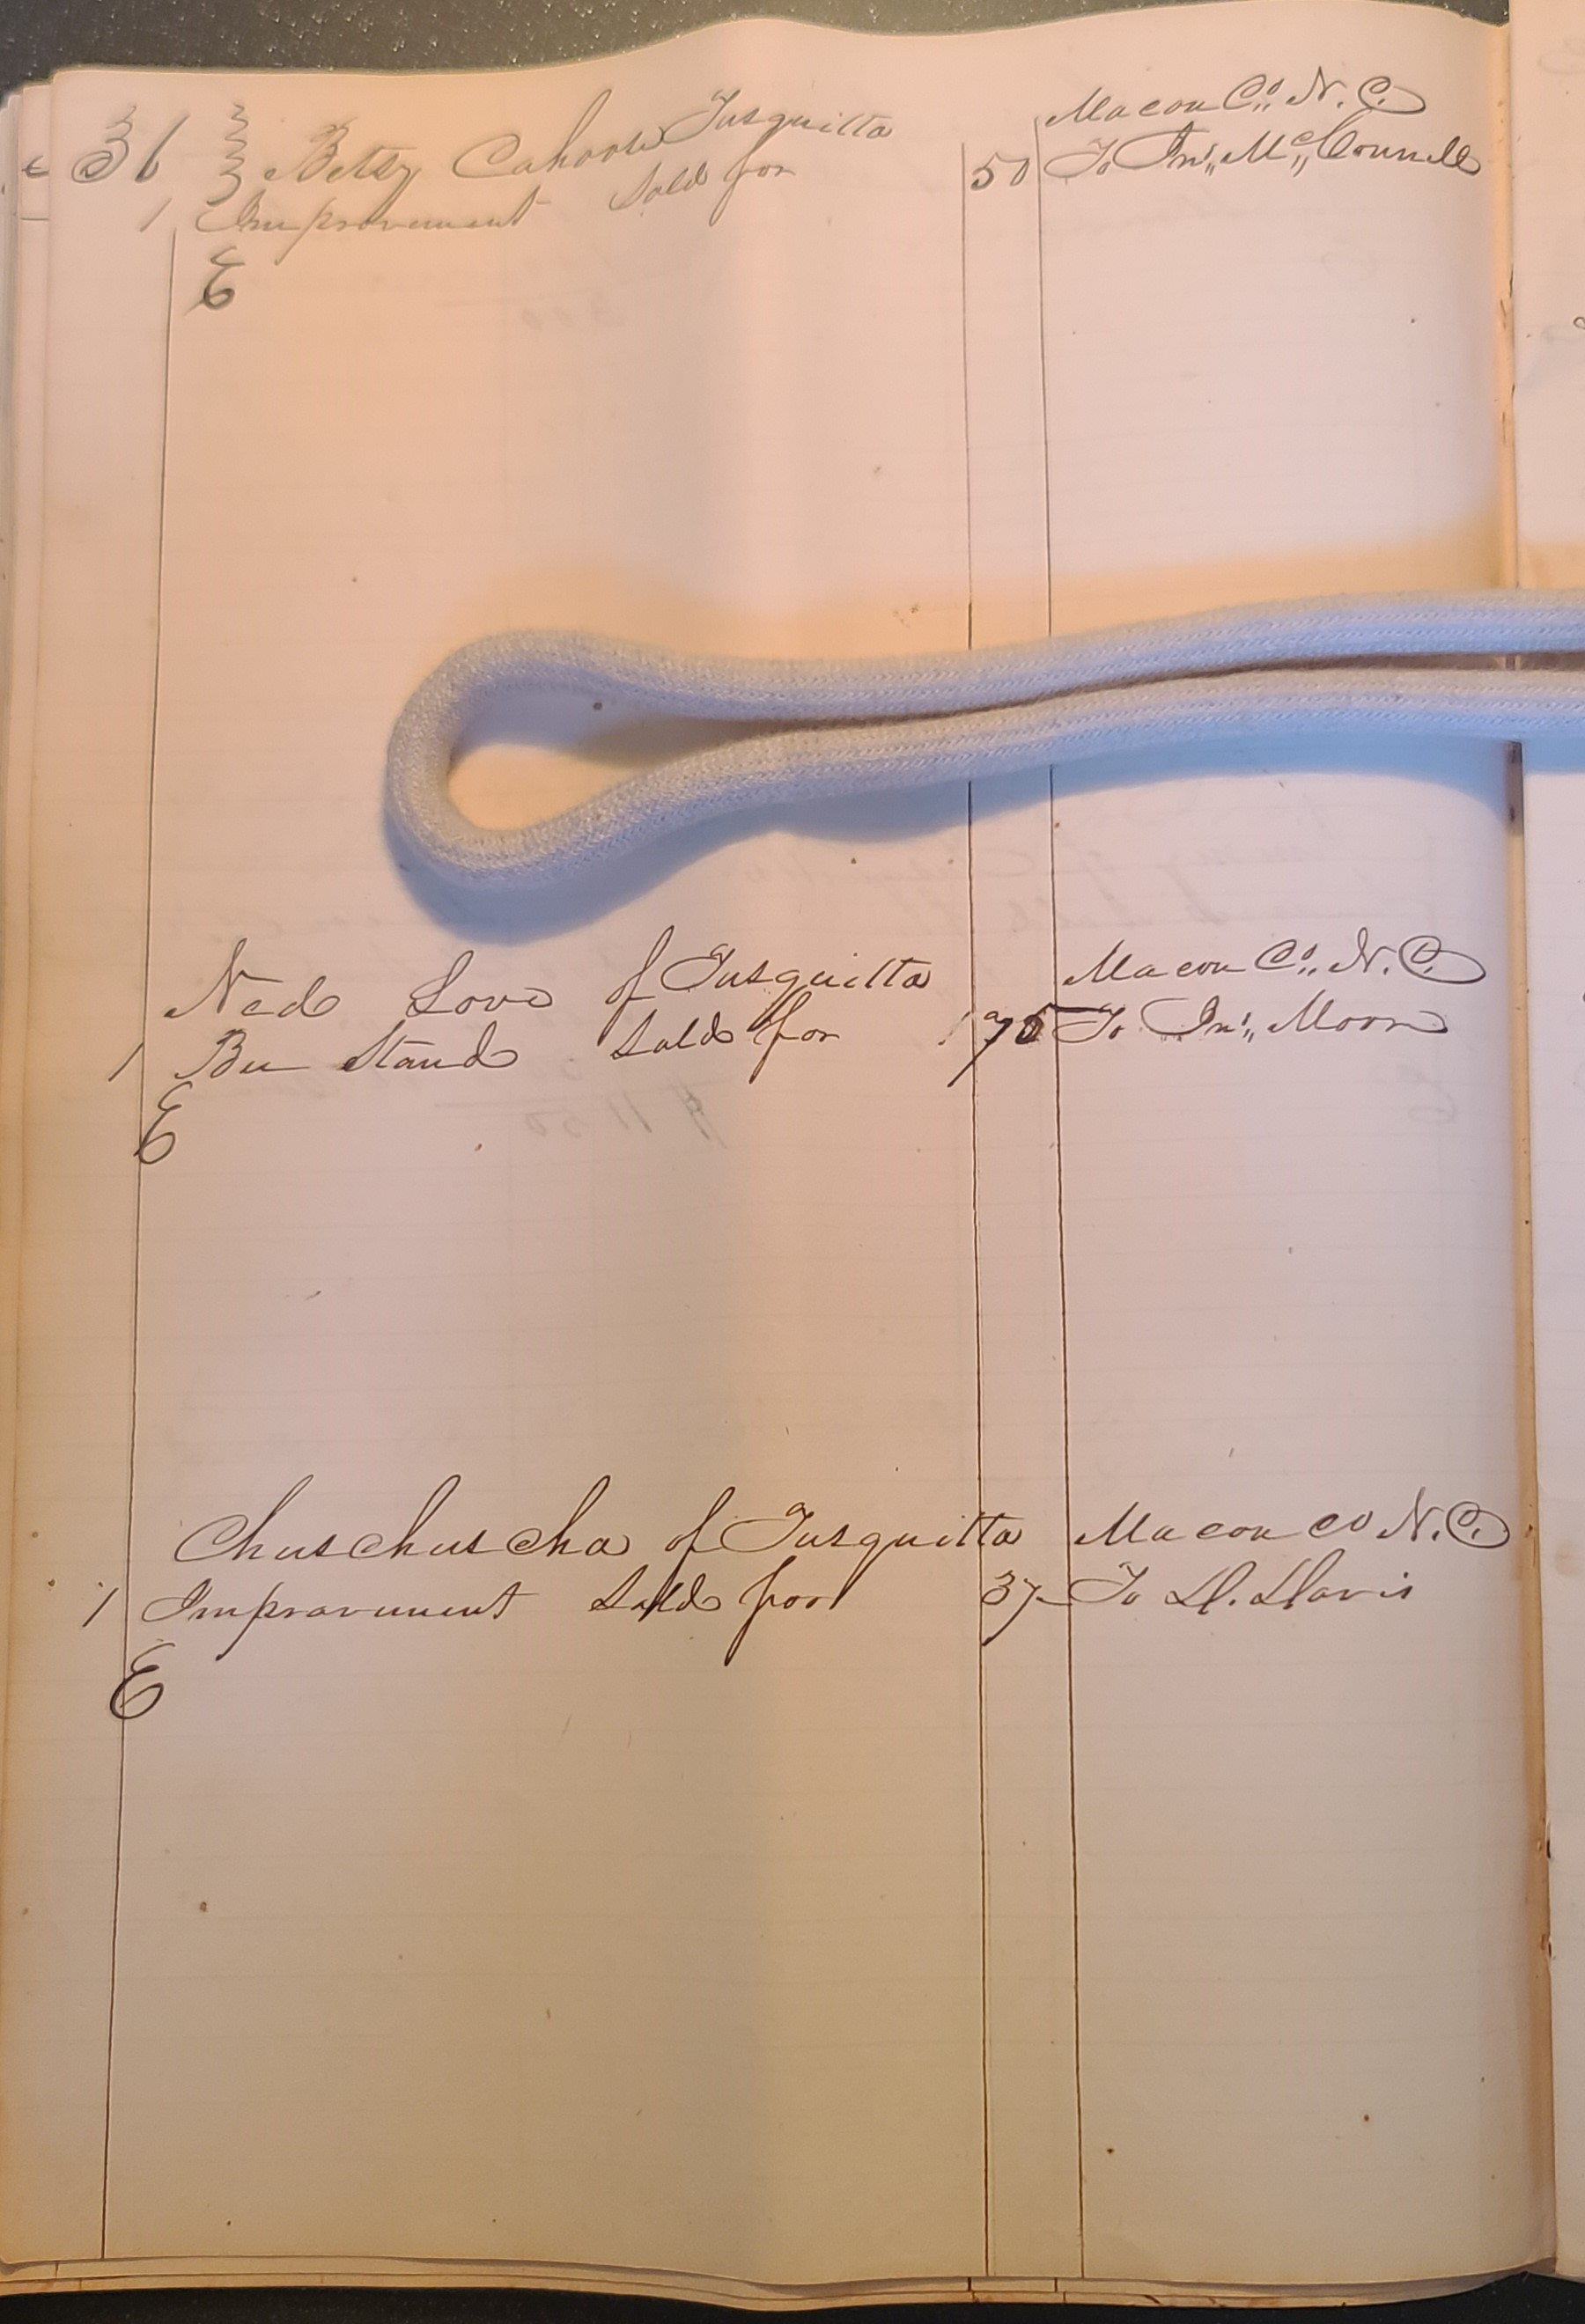 36 Betsy Cahoose Tusquitta Macon Co,, N.C.
1 Improvement Sold for 50 To Jno,, Mc,,Connell
E
Ned Love of Tusquitta Macon Co,, N.C.
1 Bee Stand Sold for 1 75 To Jno,, Moore
E
Chuschuscha of Tusquitta Macon Co N.C.
1 Improvement Sold for 37 To D. Davis
E